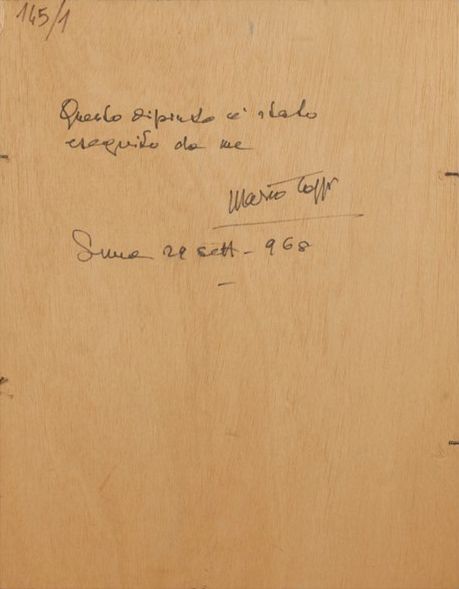 145/1
Questo dipinto è stato
eseguito da me
Mario
29 sett - 968